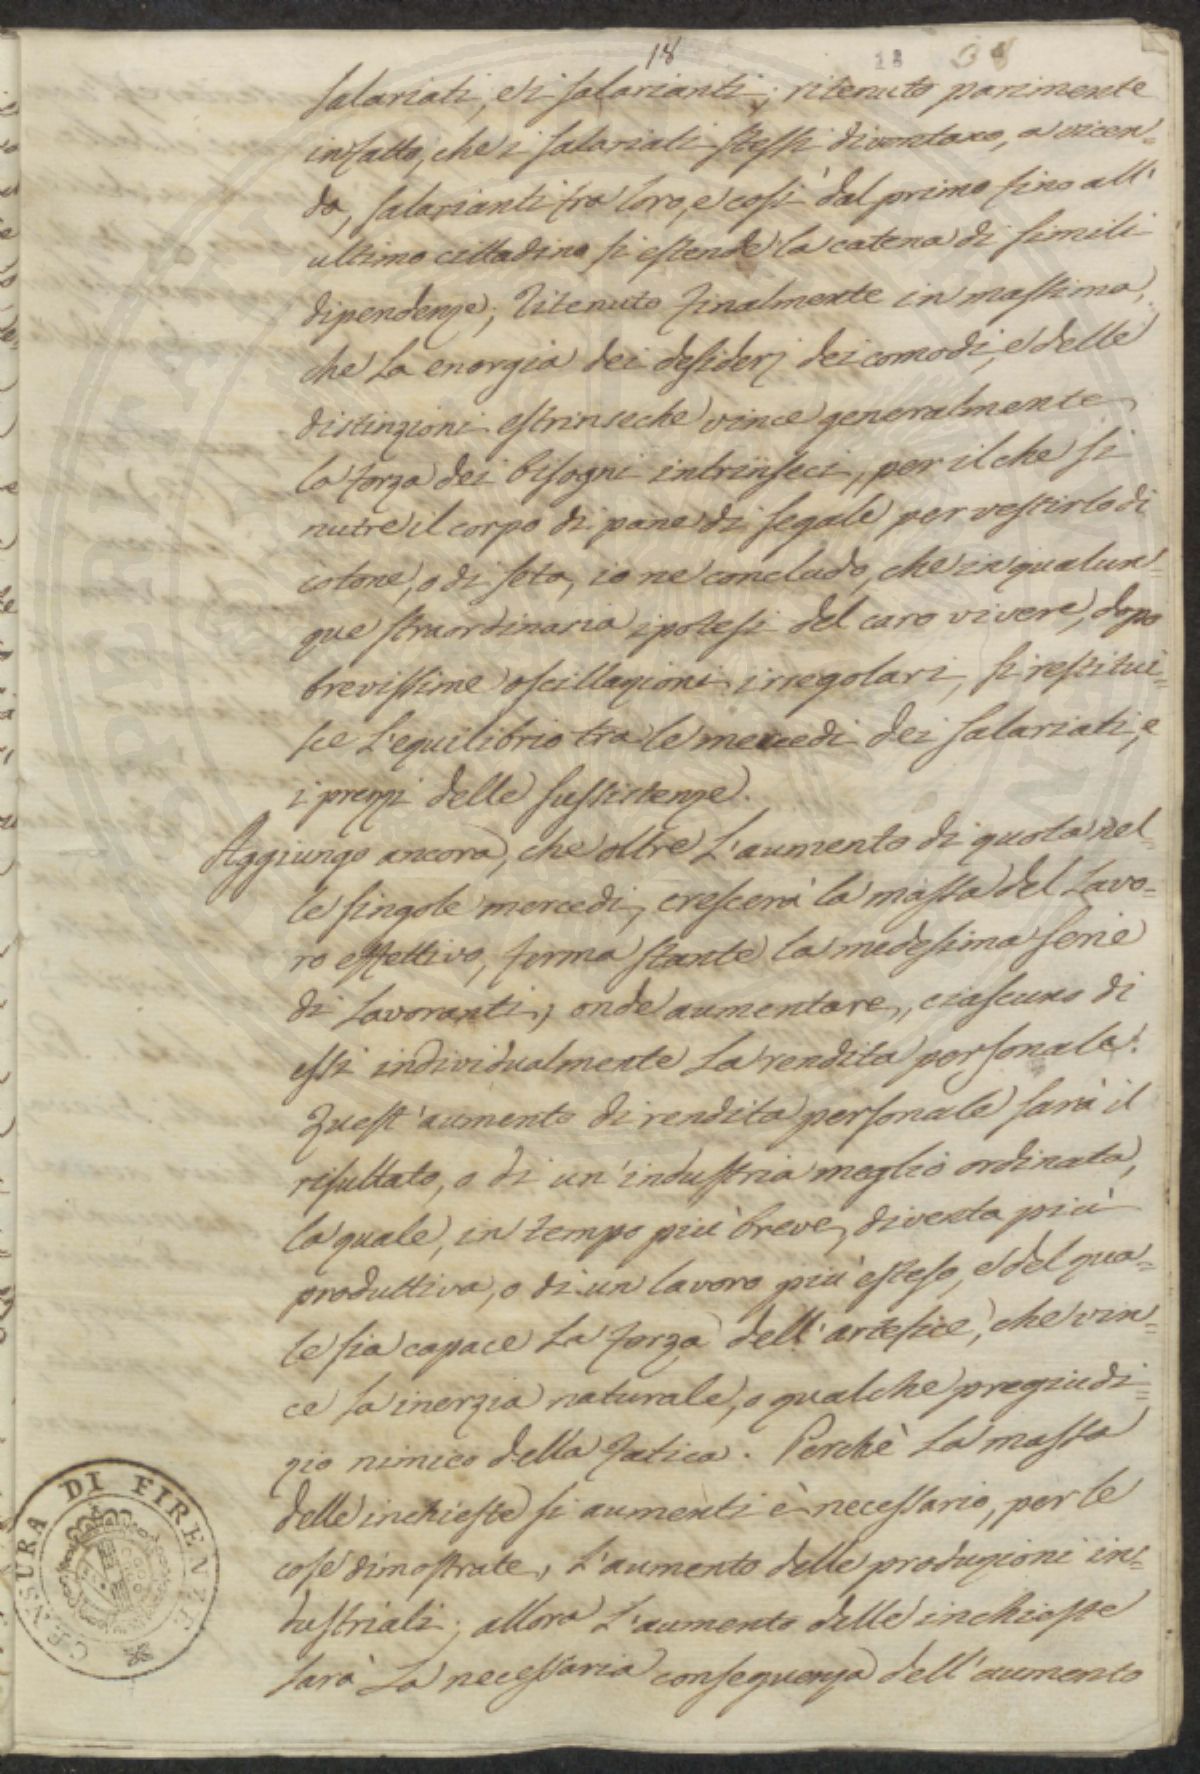 18
18
salariati, ed i salarianti; ritenuto parimente
in fatto, che i salariati stessi diventano, a vicen=
da, salarianti fra loro, e così dal primo fino all'
ultimo cittadino si estende la catena di simili
dipendenze; Ritenuto finalmente in massima,
che la energia dei desiderj dei comodi, e delle
distinzioni estrinseche vince generalmente
la forza dei bisogni intrinseci, per il che si
nutre il corpo di pane di segale per vestirlo di
cotone, o di seta, io ne concludo, che in qualun=
que straordinaria ipotesi del caro vivere, dopo
brevissime oscillazioni irregolari, si restitui=
sce l'equilibrio tra le mercedi dei salariati, e
i prezzi delle sussistenze.
Aggiungo ancora, che oltre l'aumento di quota nel=
le singole mercedi, crescerà la massa del lavo=
ro effettivo, ferma stante la medesima serie
di lavoranti, onde aumentare, ciascuno di
essi individualmente la rendita personale.
Quest'aumento di rendita personale sarà il
risultato, o di un'industria meglio ordinata,
la quale, in tempo più breve, diventa più
produttiva, o di un lavoro più esteso, e del qua=
le sia capace la forza dell'artefice, che vin=
ce la inerzia naturale, o qualche pregiudi=
zio nimico della fatica. Perchè la massa
delle inchieste si aumenti è necessario, per le
cose dimostrate, l'aumento delle produzioni in=
dustriali; allora l'aumento delle inchieste
sarà la necessaria conseguenza dell'aumento
CENSURA DI FIRENZE